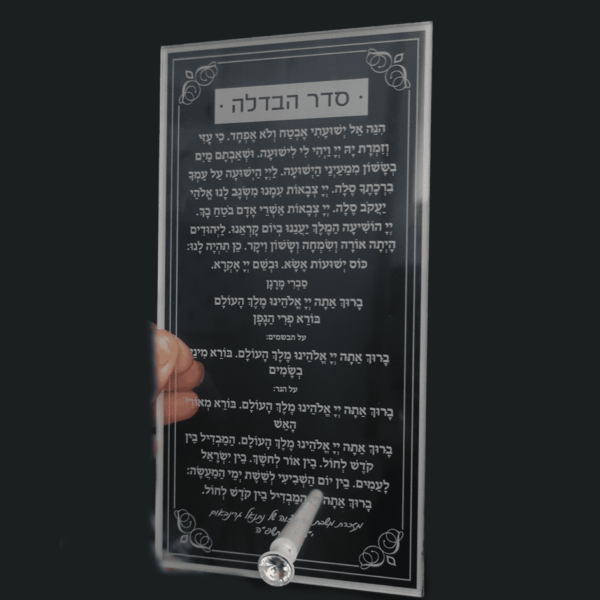 · סדר הבדלה ·
הִנֵּה אֵל יְשׁוּעָתִי אֶבְטַח וְלֹא אֶפְחָד. כִּי עָזִּי
וְזִמְרָת יָהּ יְיָ וַיְהִי לִי לִישׁוּעָה. וּשְׁאַבְתֶּם מַיִם
בְּשָׂשׂוֹן מִמַּעַיְנֵי הַיְשׁוּעָה. לַיְיָ הַיְשׁוּעָה עַל עַמְּךָ
בִרְכָתֶךָ סֶּלָה. יְיָ צְבָאוֹת עִמָּנוּ מִשְׂגָּב לָנוּ אֱלֹהֵי
יַעֲקֹב סֶלָה. יְיָ צְבָאוֹת אַשְׁרֵי אָדָם בֹּטֵחַ בָּךְ.
יְיָ הוֹשִׁיעָה הַמֶּלֶךְ יַעֲנֵנוּ בְיוֹם קָרְאֵנוּ. לַיְּהוּדִים
הָיְתָה אוֹרָה וְשִׂמְחָה וְשָׂשׂוֹן וִיקָר. כֵּן תִּהְיֶה לָנוּ:
כּוֹס יְשׁוּעוֹת אֶשָּׂא. וּבְשֵׁם יְיָ אֶקְרָא.
סַבְרִי מָרָנָן
בָּרוּךְ אַתָּה יְיָ אֱלֹהֵינוּ מֶלֶךְ הָעוֹלָם
בּוֹרֵא פְּרִי הַגָּפֶן
על הבשמים:
בָּרוּךְ אַתָּה יְיָ אֱלֹהֵינוּ מֶלֶךְ הָעוֹלָם. בּוֹרֵא מִינֵי
בְשָׂמִים
על הנר:
בָּרוּךְ אַתָּה יְיָ אֱלֹהֵינוּ מֶלֶךְ הָעוֹלָם. בּוֹרֵא מְאוֹרֵי
הָאֵשׁ
בָּרוּךְ אַתָּה יְיָ אֱלֹהֵינוּ מֶלֶךְ הָעוֹלָם. הַמַּבְדִּיל בֵּין
קֹדֶשׁ לְחוֹל. בֵּין אוֹר לְחֹשֶׁךְ. בֵּין יִשְׂרָאֵל
לָעַמִּים. בֵּין יוֹם הַשְּׁבִיעִי לְשֵׁשֶׁת יְמֵי הַמַּעֲשֶׂה:
בָּרוּךְ אַתָּה יְיָ הַמַּבְדִּיל בֵּין קֹדֶשׁ לְחוֹל.
מזכרת משבת של נתנאל
תשפ"ה